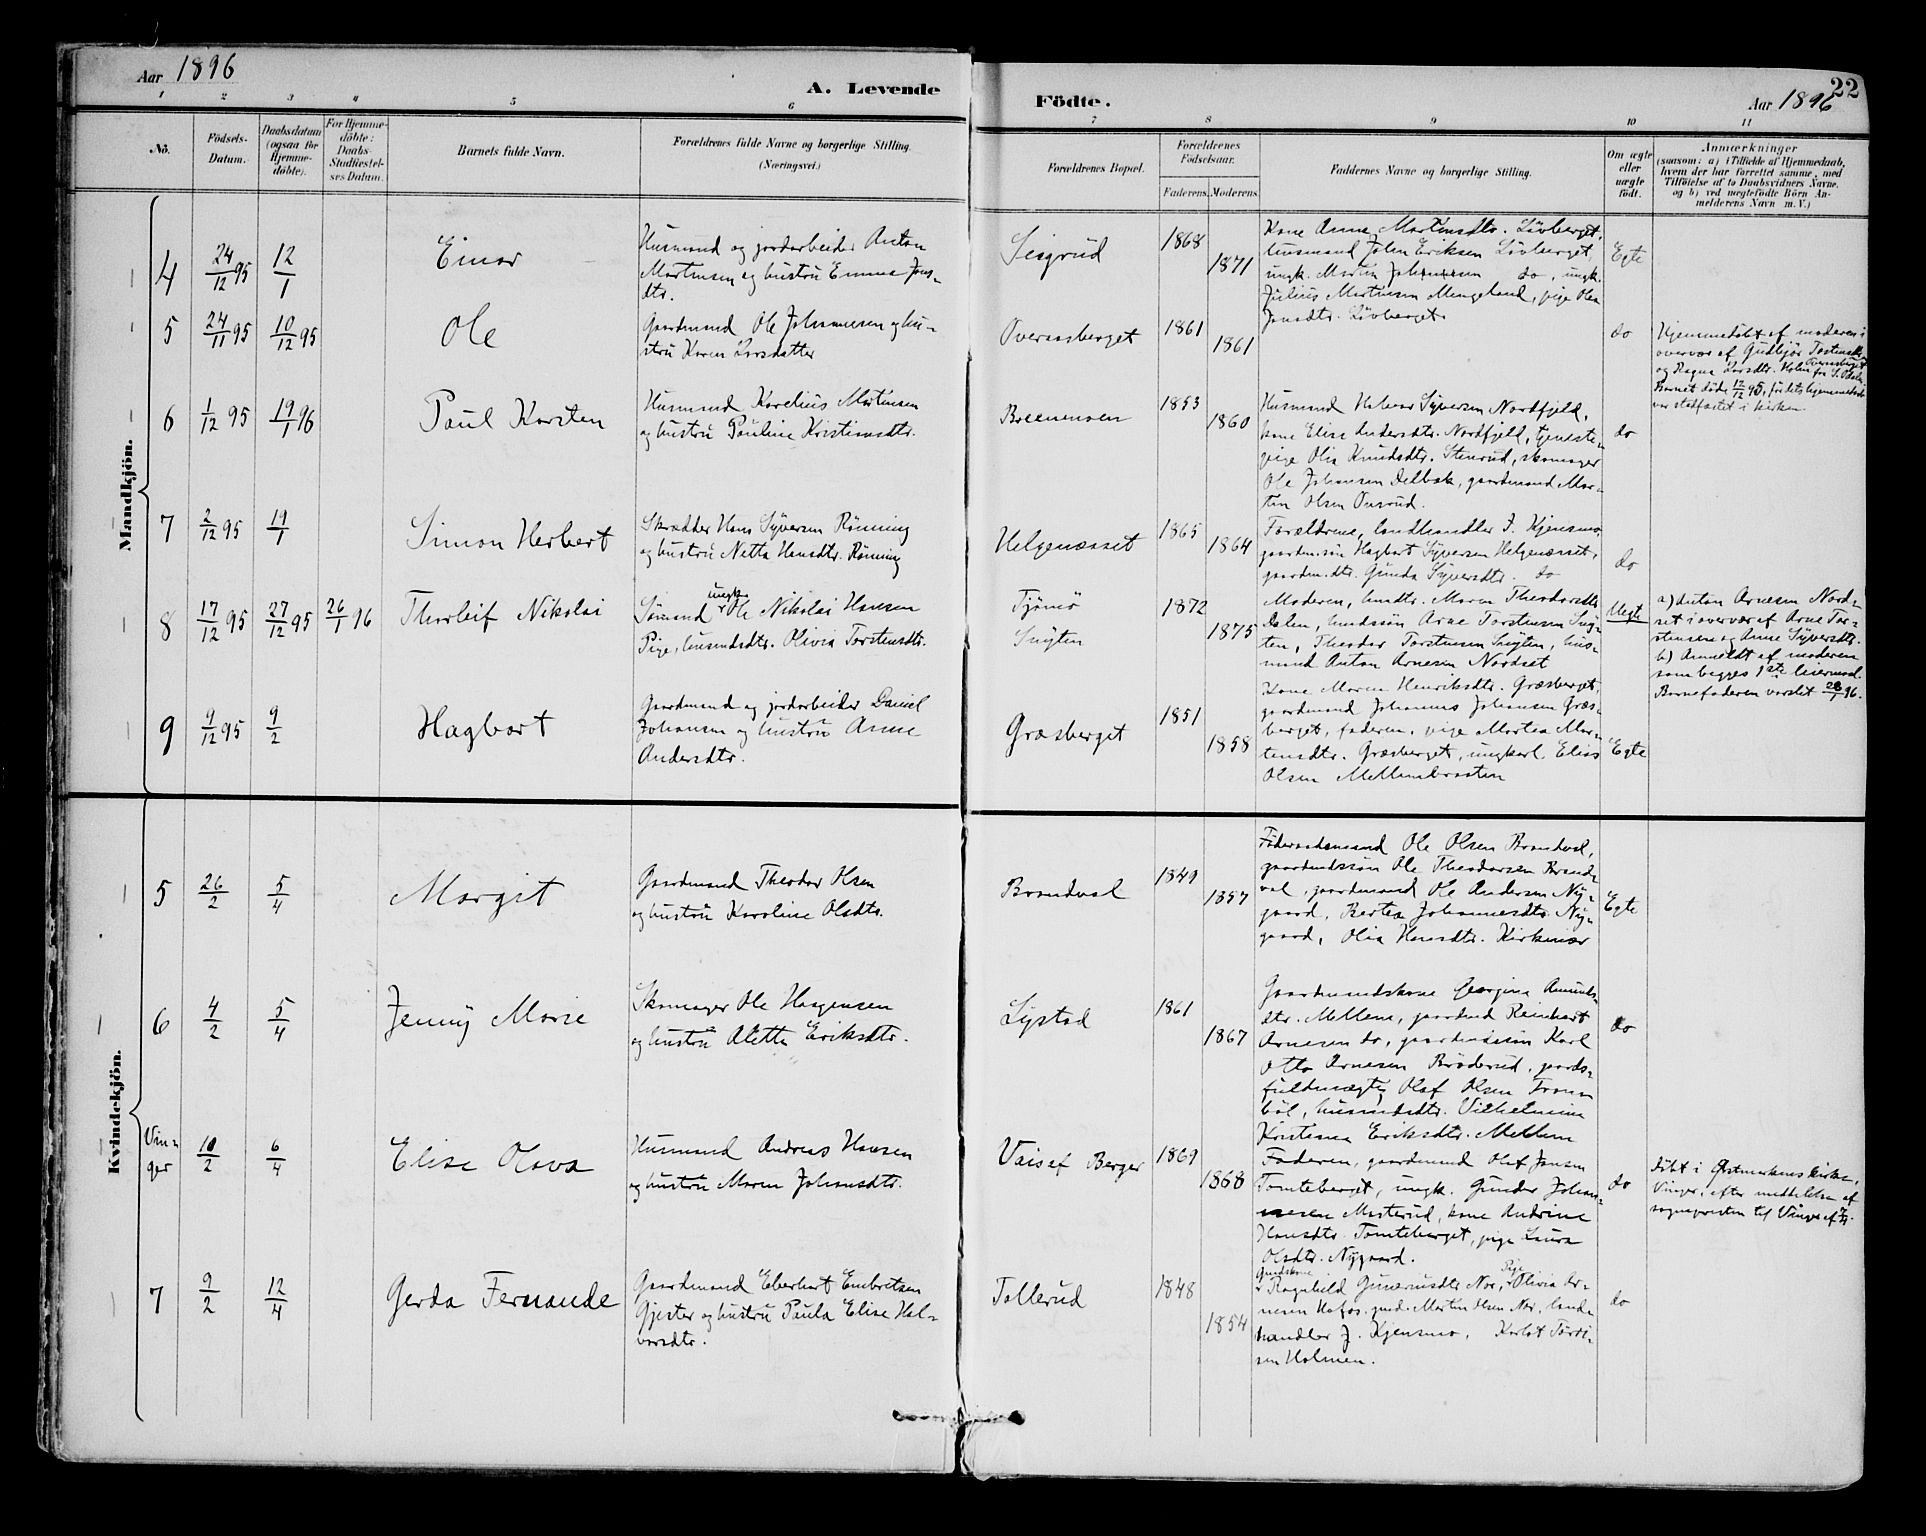 Aar 1896
A. Levende
Födte.
Aar 1896
22
1 2 3 4 5 6 7 8 9 10 11
No.
Födsels-
Datum.
Daabsdatum
(ogsaa for
Hjemme-
döbte).
For Hjemme-
döbte:
Daabs-
Stadfæstel-
ses Datum.
Barnets fulde Navn.
Forældrenes fulde Navne og borgerlige Stilling.
(Næringsvei.)
Forældrenes Bopæl.
Forældrenes
Födselsaar.
Faderens. Moderens.
Faddernes Navne og borgerlige Stilling.
Om ægte
eller
uægte
født.
Anmærkninger
(saasom: a) i Tilfælde af Hjemmedaab,
hvem der har forrettet samme, med
Tilføielse af to Daabsvidners Navne,
og b) ved uægtefødte Børn An-
melderens Navn m. V.)
Mandkjön.
4 24/12 95 12/1 Einar
Husmand og jordarbeider Anton
Martinsen og hustru Emma Jons-
dtr.
Sisgrud
1868
1871
Kone Anne Martinsdtr. Lövberget,
husmand Johan Eriksen Lövberget,
ungk. Martin Johannesen do, ungk.
Julius Martinsen Mengeland, pige Olea
Jonsdtr. Lövberget.
Egte
5 24/11 95 10/12 95 Ole
Gaardmand Ole Johannesen og hu-
stru Karen Larsdatter
Overaasberget
1861
1861
do
Hjemmedöbt af moderen i
overvær af Gudbjör Torstensdtr. Overaasberget
og Ragna Larsdtr. Holm fra S. Odalen
Barnet döde 12/12 95, för dets hjemmedaab
var stadfæstet i kirken.
6 1/12 95 19/1 96 Paul Karsten
Husmand Karelius Martinsen
og hustru Pauline Kristiansdtr.
Brænmoen
1853
1860
Husmand Halvor Syversen Nordfjeld,
kone Elise Andersdtr. Nordfjeld, tjeneste-
pige Olia Knudsdtr. Stenrud, skomager
Ole Johansen Delbæk, gaardmand Mar-
tin Olsen Overud.
do
7 2/12 95 19/1 Simon Herbert
Skrædder Hans Syversen Rönning
og hustru Netta Hansdtr. Rönning
Helgenæsset
1865
1864
Forældrene, landhandler J. Kjensmo,
gaardm.sön Hagbart Syversen Helgenæsset,
gaardm.dtr. Gunda Syversdtr. do
do
8 17/12 95 27/12 95 26/1 96 Thorleif Nikolai
Sömand ungk. Ole Nikolai Hansen
Pige, husmdsdtr. Olivia Torstensdtr.
Tjömö
Snyten
1872
1875
Moderen, husdtr. Maren Theodorsdtr.
Dalen, husdssön Arne Torstensen Sny-
ten, Theodor Torstensen Snyten, hus-
mand Anton Arnesen Nordset
Uegte
a) Anton Arnesen Nord-
set i overvær af Arne Tor-
stensen og Anne Syversdtr.
b) Anmeldt af moderen
som begges 1ste leiermaal.
Barnefaderen varslet 28/1 96.
9 9/12 95 9/2 Hagbart
Gaardmand og jordarbeider Daniel
Johansen og hustru Anne
Andersdtr.
Græsberget
1851
1858
Kone Maren Henriksdtr. Græsberget,
gaardmand Johannes Johansen Græs-
berget, faderen, pige Martea Mor-
tensdtr. Græsberget, ungkarl Elias
Olsen Mellembraaten
Egte
Kvindekjön.
5 26/2 5/4 Margit
Gaardmand Theodor Olsen
og hustru Karoline Olsdtr.
Brandval
1849
1857
Föderaadsmand Ole Olsen Brandval,
gaardmdssön Ole Theodorsen Brand-
val, gaardmand Ole Andersen Ny-
gaard, Bertea Johannesdtr. Ny-
gaard, Olia Hansdtr. Kirkenær
Egte
6 4/2 5/4 Jenny Marie
Skomager Ole Haagensen
og hustru Aletta Eriksdtr.
Lystad
1861
1867
Gaardmandskone Georgine Amunds-
dtr. Mellem, gaardmd Reinhart
Arnesen do, gaardmdssön Karl
Otto Arnesen Bröderud, gaards-
fuldmægtig Olaf Olsen From
böl, husmdsdtr. Vilhelmine
Kristiana Eriksdtr. Mellem
do
Vin-
ger
10/2 6/4 Elise Olava
Husmand Andreas Hansen
og hustru Maren Johansdtr.
Vaisef Berger
1869
1868
Faderen, gaardmand Olaf Jonsen
Tomteberget, ungk. Gunder Johan-
nesen Masterud, kone Andrine
Hansdtr. Tomteberget, pige Laura
Olsdtr. Nygaard.
do
döbt i Østmarkens kirke,
Vinger, efter meddelelse af
sognepresten til Vinger af
7 9/2 12/4 Gerda Fernande
Gaardmand Eberhart Embretsen
Gjester og hustru Paula Elise Hal-
vorsdtr.
Tollerud
1848
1854
Gmdskone Ragnhild Gunerusdtr. Nor, Pige Olivia Ar-
nesen Hofos, gmd. Martin Olsen Nor, land-
handler J. Kjensmo, Karlot Tördi-
sen Holmen.
do